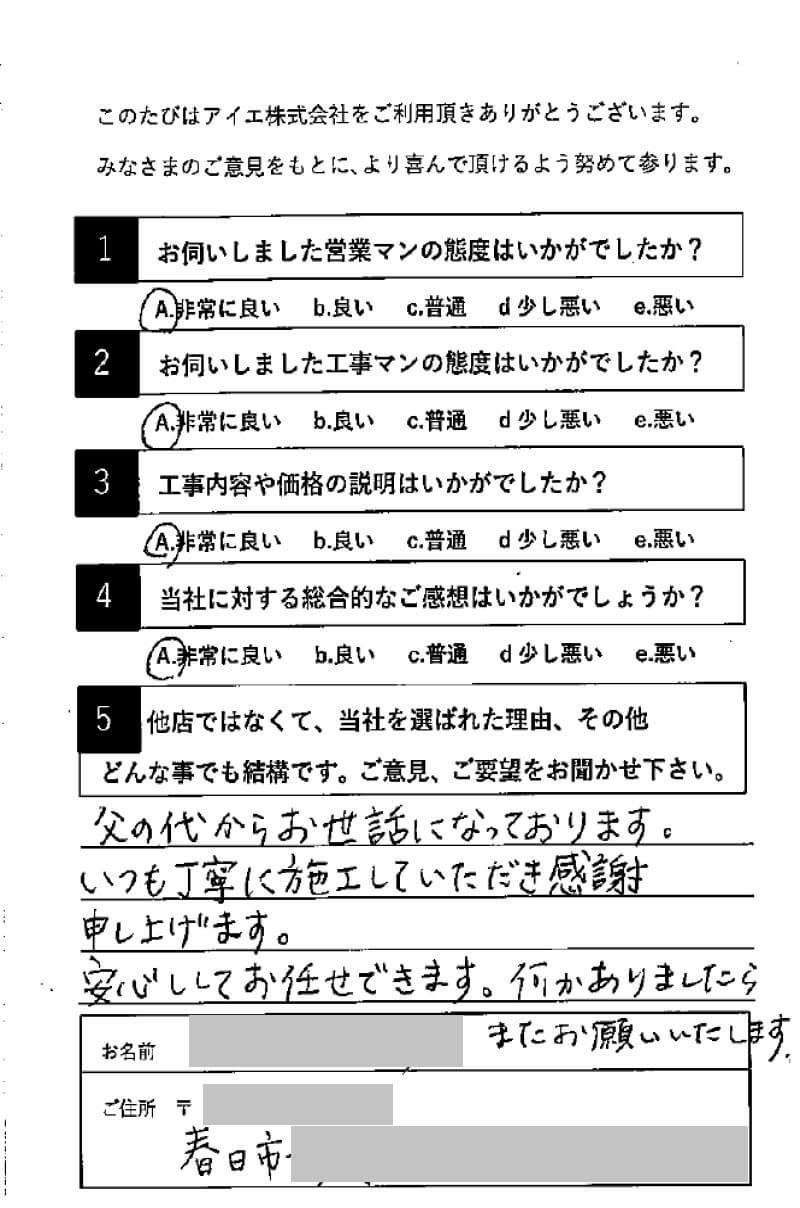 このたびはアイエ株式会社をご利用頂きありがとうございます。
みなさまのご意見をもとに、より喜んで頂けるよう努めて参ります。
1 お伺いしました営業マンの態度はいかがでしたか？
A.非常に良い b.良い c.普通 d 少し悪い e.悪い
2 お伺いしました工事マンの態度はいかがでしたか？
A.非常に良い b.良い c.普通 d 少し悪い e.悪い
3 工事内容や価格の説明はいかがでしたか？
A.非常に良い b.良い c.普通 d 少し悪い e.悪い
4 当社に対する総合的なご感想はいかがでしょうか？
A.非常に良い b.良い c.普通 d 少し悪い e.悪い
5 他店ではなくて、当社を選ばれた理由、その他
どんな事でも結構です。ご意見、ご要望をお聞かせ下さい。
父の代からお世話になっております。
いつも丁寧に施工していただき感謝
申し上げます。
安心ししてお任せできます。何かありましたら
またお願いいたします。
お名前
ご住所 〒
春日市